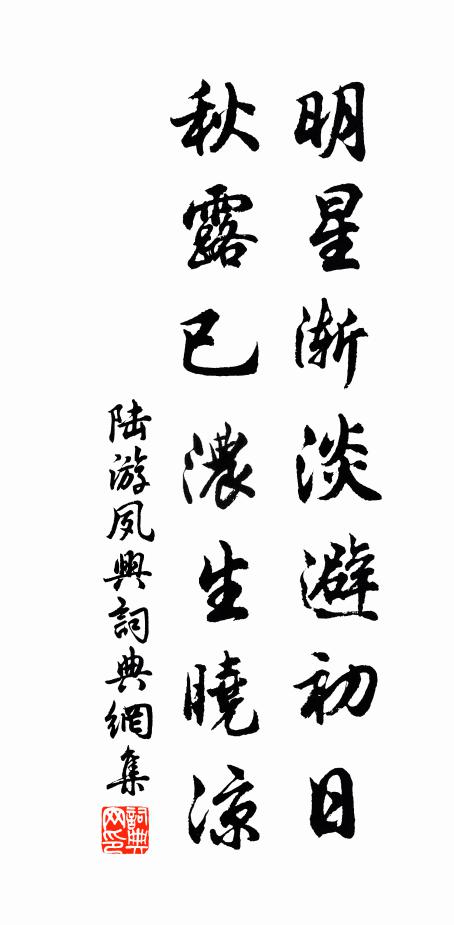 明星渐淡避初日
秋露已濃生曉凉
陆游夙興詞典網集
詞典网印